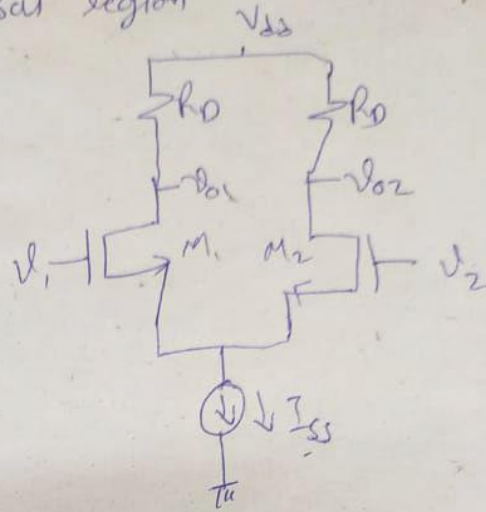 region
Vdd
RD RD
vo1 vo2
v1 M1 M2 v2
ISS